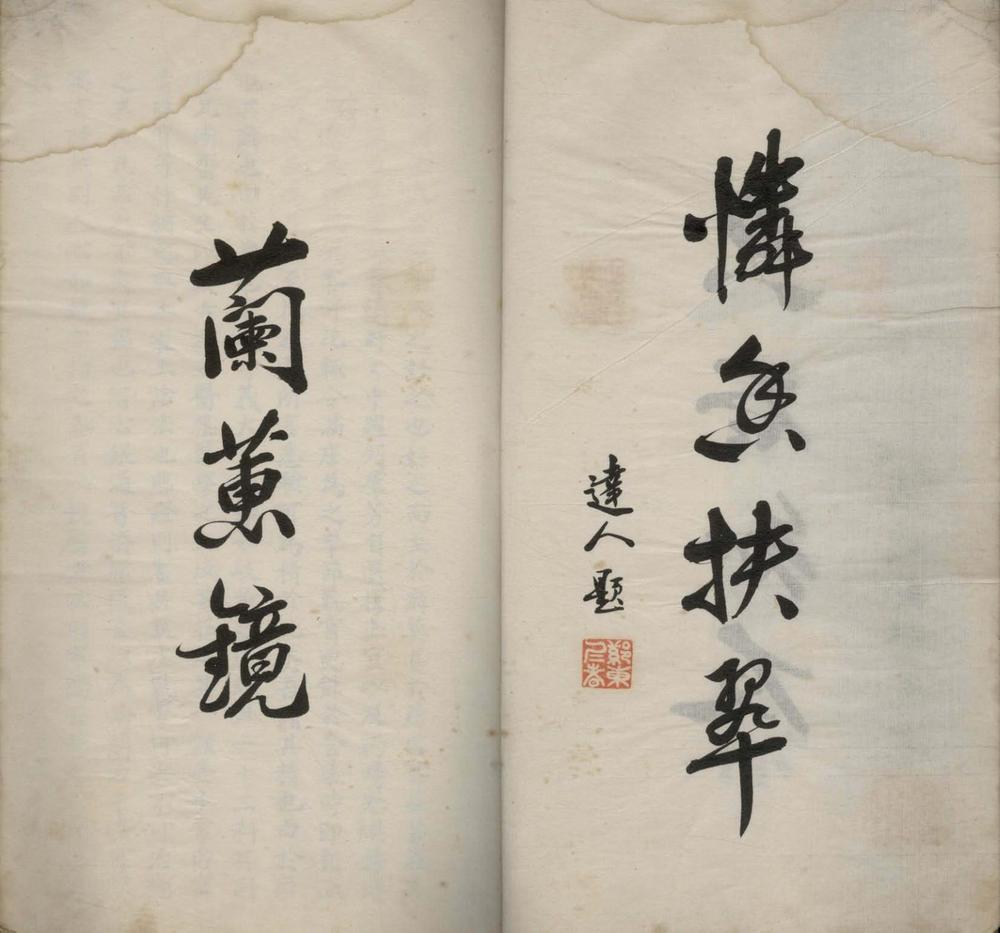 憐香扶翠
達人題
蘭蕙鏡